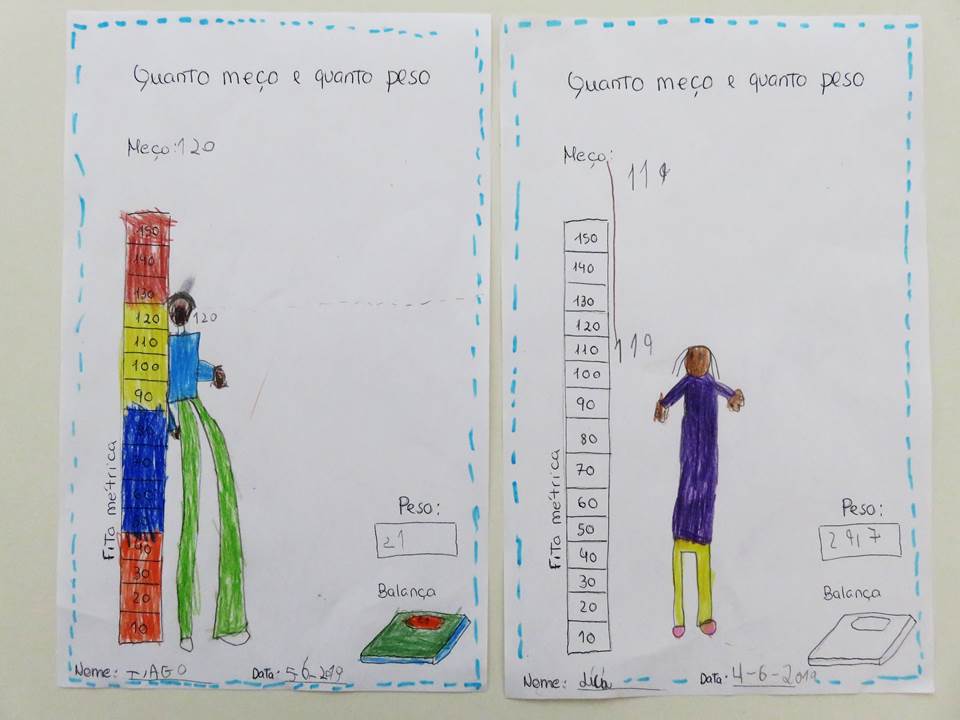 Quanto meço e quanto peso
Meço: 120
150
140
130
120
110
100
90
80
70
60
40
30
20
10
120
Fita métrica
Peso:
21
Balança
Nome: TIAGO Data: 5-6-2019
Quanto meço e quanto peso
Meço:
119
150
140
130
120
110
100
90
80
70
60
50
40
30
20
10
119
Fita métrica
Peso:
Balança
Nome: Data: 4-6-2019